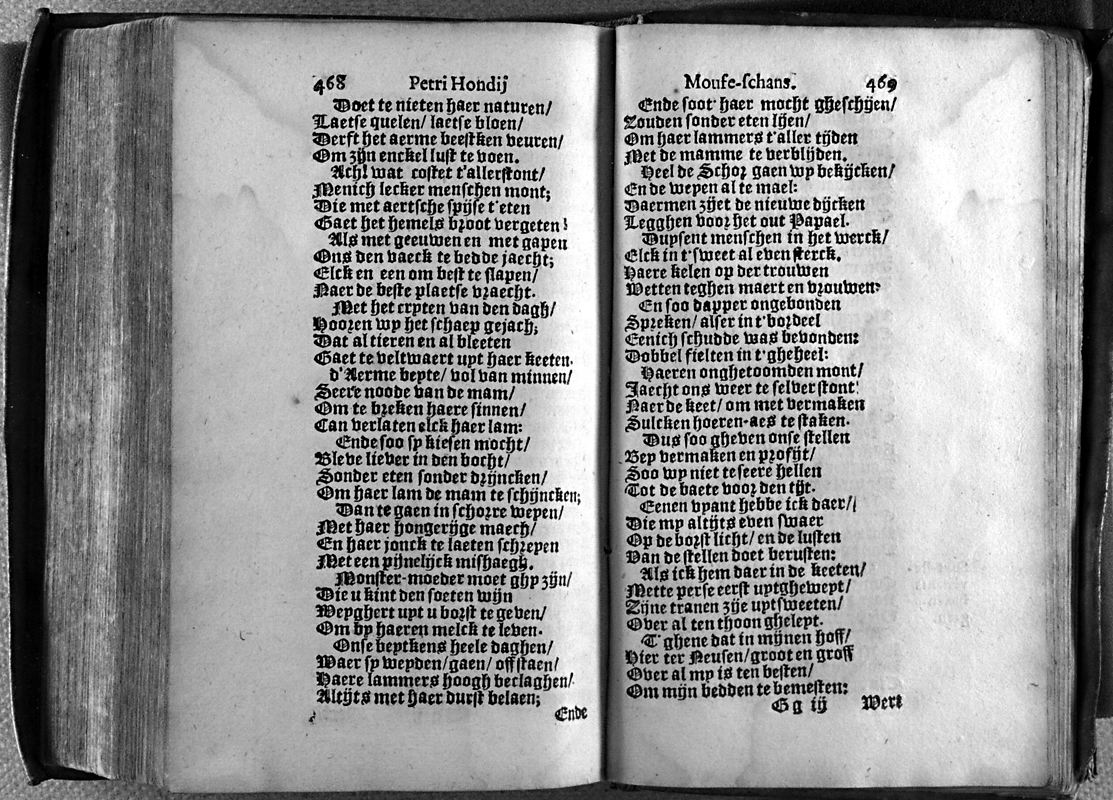 468 Petri Hondij
Doet te nieten haer naturen/
Laetse quelen/ laetse bloen/
Derft het aerme beestken veuren/
Om zijn enckel lust te voen.
Ach! wat costet t'allerstont/
Menich lecker menschen mont;
Die met aertsche spijse t'eten
Gaet het hemels broot vergeten!
Als met geeuwen en met gapen
Ons den vaeck te bedde jaecht;
Elck en een om best te slapen/
Naer de beste plaetse vraecht.
Met het cryten van den dagh/
Hooren wy het schaep gejach;
Dat al tieren en al bleeten
Gaet te veltwaert uyt haer keeten.
d'Aerme beyte/ vol van minnen/
Seere noode van de mam/
Om te breken haere sinnen/
Can verlaten elck haer lam:
Ende soo sy kiesen mocht/
Bleve liever in den bocht/
Sonder eten sonder drijncken/
Om haer lam de mam te schijncken;
Dan te gaen in schorre weyen/
Met haer hongerijge maech/
En haer jonck te laeten schreyen
Met een pijnelijck mishaegh.
Monster-moeder moet ghy zijn/
Die u kint den soeten wijn
Weyghert uyt u borst te geven/
Om by haeren melck te leven.
Onse beytkens heele daghen/
Waer sy weyden/ gaen/ off staen/
Haere lammers hoogh beclaghen/
Altijts met haer durst belaen;
Ende
Mouse-schans. 469
Ende soot' haer mocht gheschijen/
Zouden sonder eten lijen/
Om haer lammers t'aller tijden
Met de mamme te verblijden.
Heel de Schor gaen wy bekijcken/
En de weyen al te mael:
Daermen zijet de nieuwe dijcken
Legghen voor het out Papael.
Duysent menschen in het werck/
Elck in t'sweet al even sterck.
Haere kelen op der trouwen
Wetten teghen maert en vrouwen:
En soo dapper ongebonden
Spreken/ alser in t'bordeel
Eenich schudde was bevonden:
Dobbel fielten in t'gheheel:
Haeren onghetoomden mont/
Jaecht ons weer te selver stont!
Naer de keet/ om met vermaken
Sulcken hoeren-aes te staken.
Dus soo gheven onse stellen
Bey vermaken en profijt/
Soo wy niet te seere hellen
Tot de baete voor den tijt.
Eenen vyant hebbe ick daer/
Die my altijts even swaer
Op de borst licht/ en de lusten
Van de stellen doet berusten:
Als ick hem daer in de keeten/
Mette perse eerst uytgheweyt/
Zijne tranen zije uytsweeten/
Over al ten thoon gheleyt.
T'ghene dat in mijnen hoff/
Hier ter Neusen/ groot en groff
Over al my is ten besten/
Om mijn bedden te bemesten:
G g ij Wert